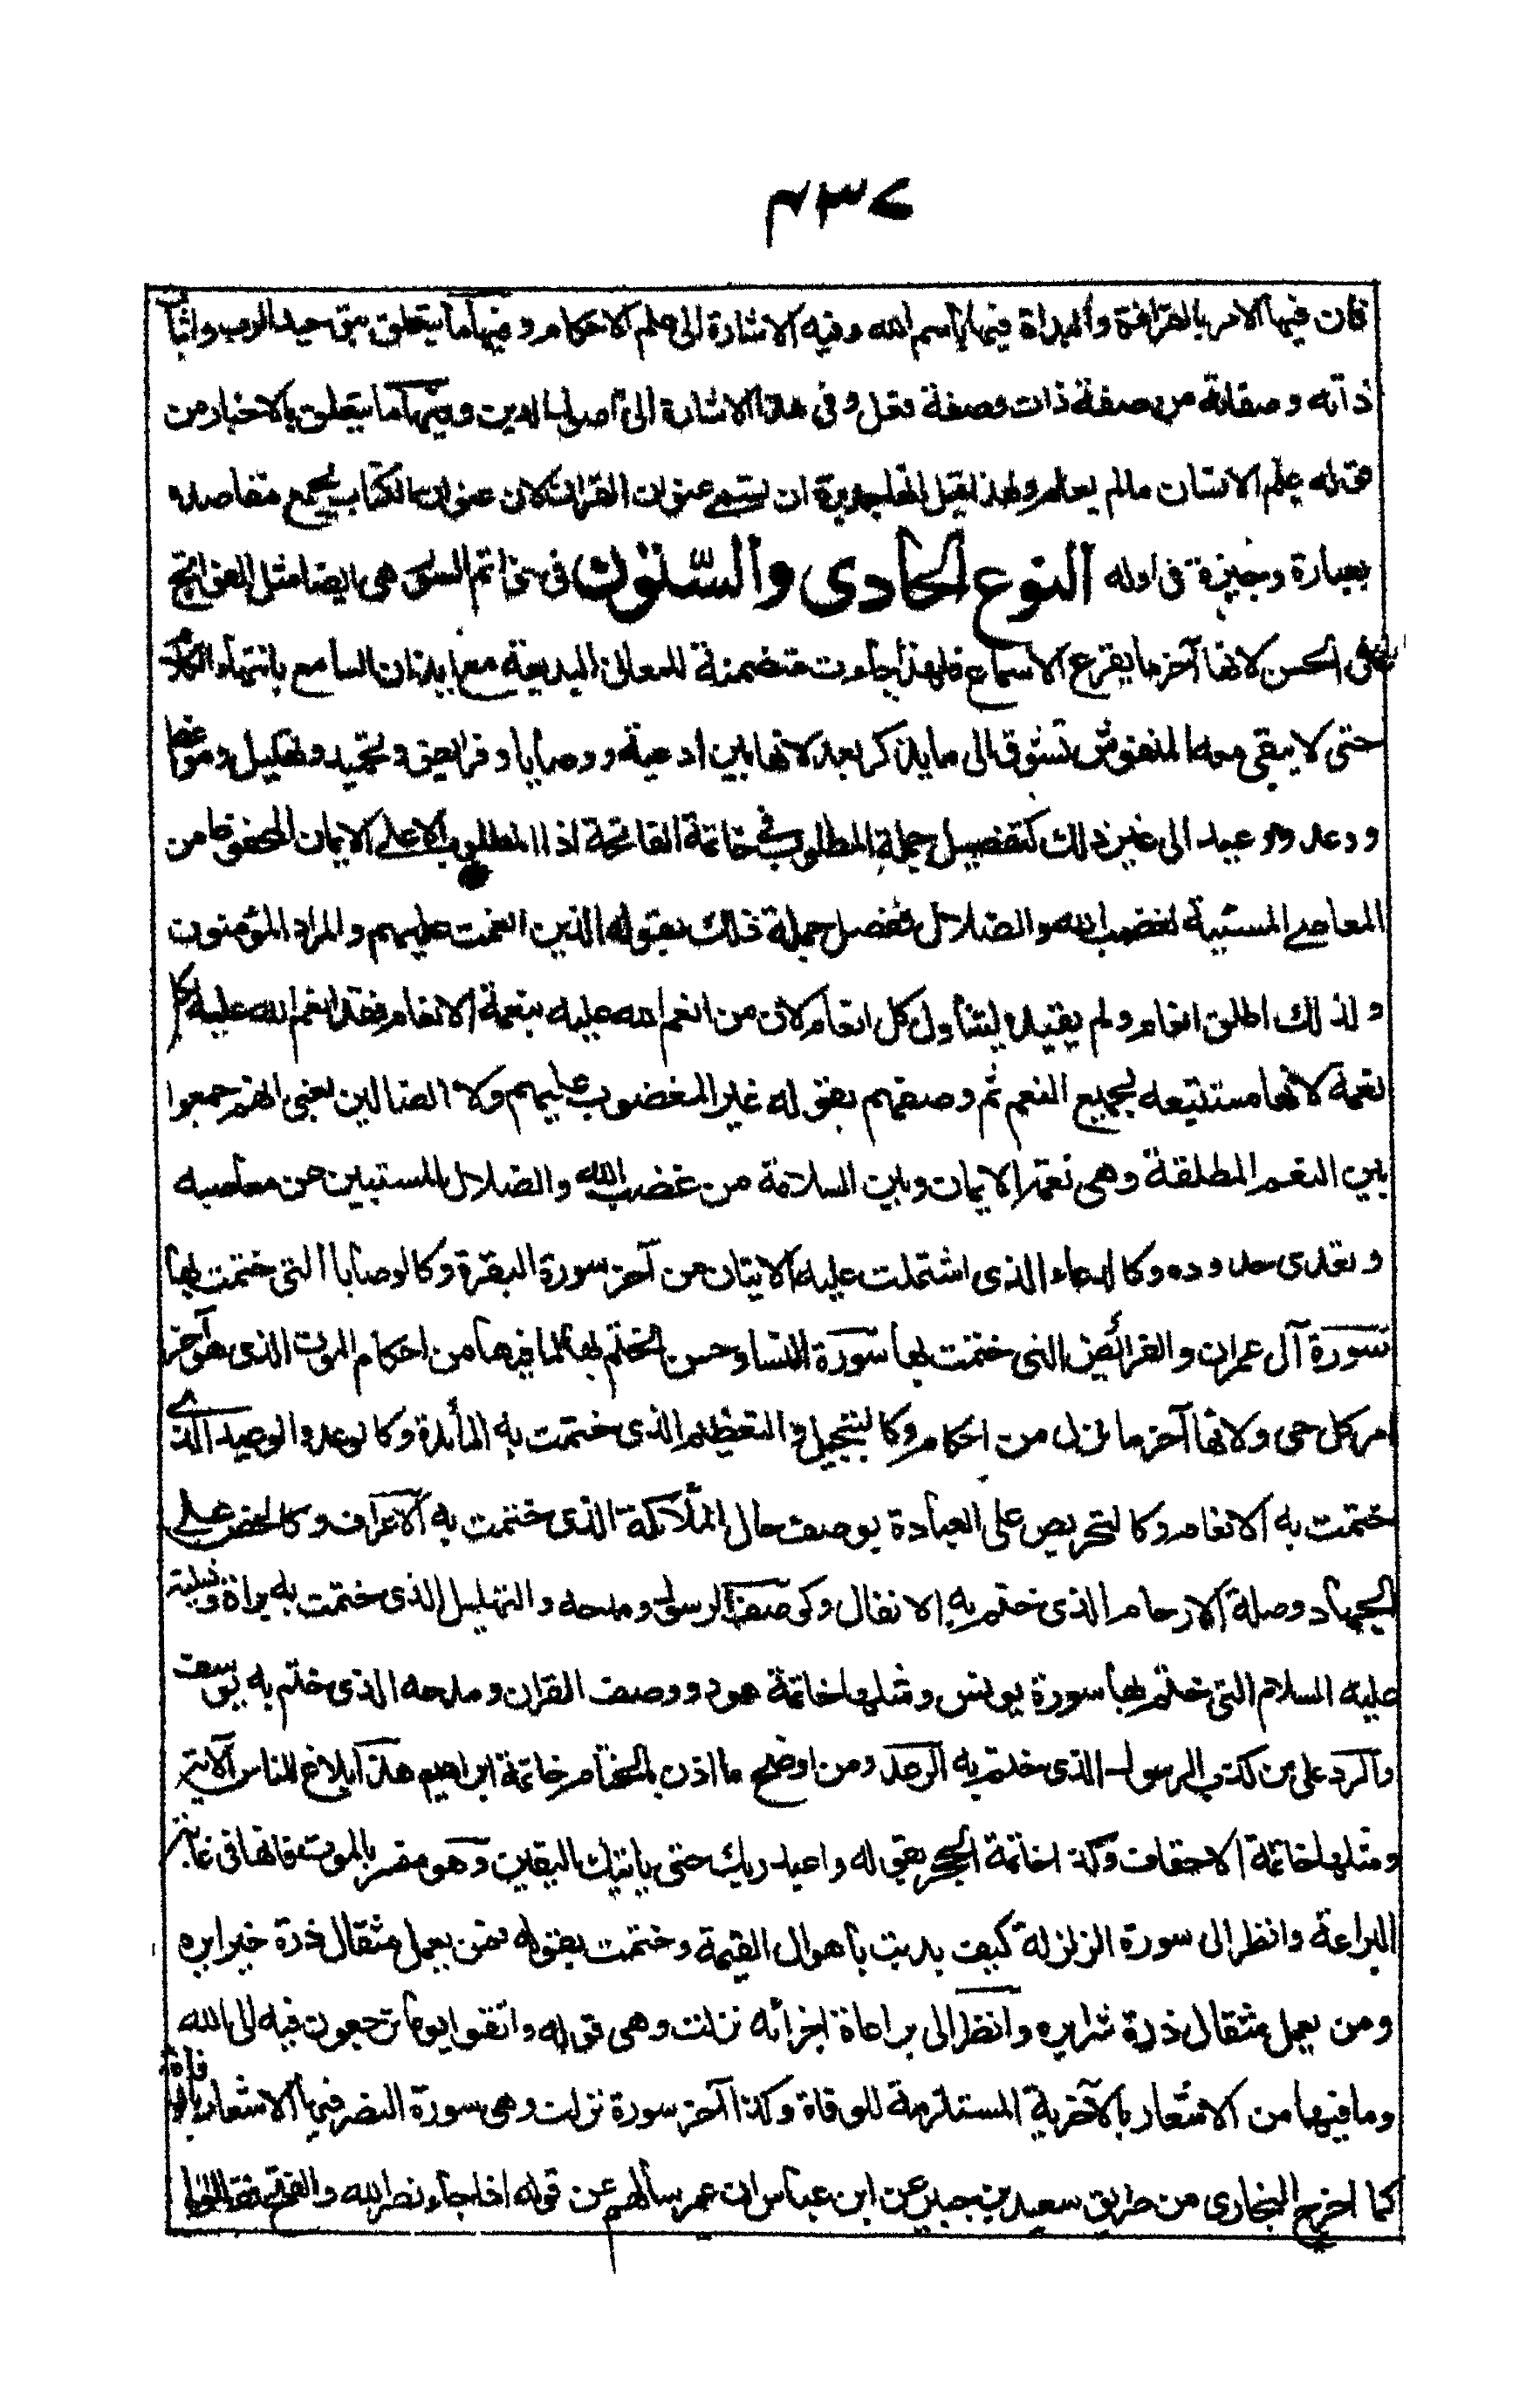 ٤٣٧
فان فيها الامر بالقراءة والبداة فيها باسم الله وفيه الاشارة الى علم الاحكام وفيها ما يتعلق بتوحيد الرب واثبات
ذاته وصفاته من صفة ذات وصفة فعل وفى هذا الاشارة الى اصول الدين وفيها ما يتعلق بالاخبار من
قوله علم الانسان مالم يعلم ولهذا قيل انها جديرة ان يستمى عنوان القرآن لان عنوان الكتاب يجمع مقاصده
بعبارة وجيزة فى اوله النوع الحادى والستون فى خواتم السور هى ايضا مثل الفواتح
فى الحسن لانها آخر ما يقرع الاسماع فلهذا جاءت متضمنة للمعانى البديعة مع ايذان السامع بانتهاء الكلام
حتى لا يبقى معه للنفوس تشوق الى ما يذكر بعد لانها بين ادعية ووصايا وفرايض وتحميد وتهليل ومواعظ
ووعد ووعيد الى غير ذلك كتفصيل جملة المطلوب فى خاتمة الفاتحة اذ المطلوب الاعلى الايمان المحفوظ من
المعاصى المسببة لغضب الله والضلال ففصل جملة ذلك بقوله الذين انعمت عليهم والمراد المؤمنون
ولذلك اطلق انعام ولم يقيده ليتناول كل انعام لان من انعم الله عليه بنعمة الانعام فقد انعم الله عليه بكل
نعمة لانها مستتبعه لجميع النعم ثم وصفهم بقوله غير المغضوب عليهم ولا الضالين يعنى انهم جمعوا
بين النعم المطلقة وهى نعمة الايمان وبين السلامة من غضب الله والضلال المسببين عن معاصيه
وتعدى حدوده وكالدعاء الذى اشتملت عليه الايتان من آخر سورة البقرة وكالوصايا التى ختمت بها
سورة آل عمران والفرائض التى ختمت بها سورة النسا وحسن الختم بها لما فيها من احكام الموت الذى هو آخر
امر كل حى ولانها آخر ما نزل من احكام وكالتبجيل والتعظيم الذى ختمت به المائدة وكالوعد والوعيد الذى
ختمت به الانعام وكالتحريص على العبادة بوصف حال الملائكة الذى ختمت به الاعراف وكالحض على
الجهاد وصلة الارحام الذى ختم به الانفال وكوصف الرسول ومدحه والتهليل الذى ختمت به براة وتسليته
عليه السلام التى ختم بها سورة يونس ومثلها خاتمة هود ووصف القرآن ومدحه الذى ختم به يوسف
والرد على من كذب الرسول الذى ختم به الرعد ومن اوضح ما اذن بالختام خاتمة ابراهيم هذا بلاغ للناس الاية
ومثلها خاتمة الاحقاف وكذا خاتمة الحجر بقوله واعبد ربك حتى ياتيك اليقين وهو مفسر بالموت فانها فى غاية
البراعة وانظر الى سورة الزلزلة كيف بديت باهوال القيمة وختمت بقوله فمن يعمل مثقال ذرة خيرا يره
ومن يعمل مثقال ذرة شرا يره وانظر الى براعاة اخر آية نزلت وهى قوله واتقوا يوما ترجعون فيه الى الله
وما فيها من الاشعار بالآخرية المستلزمة للوفاة وكذا آخر سورة نزلت وهى سورة النصر فيها الاشعار بالوفاة
كما اخرج البخارى من طريق سعيد بن جبير عن ابن عباس ان عمر سألهم عن قوله اذا جاء نصر الله والفتح فقالوا